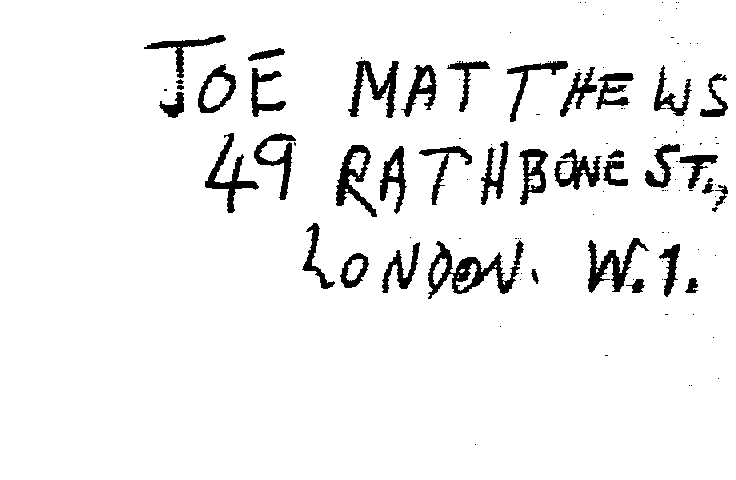 JOE MATTHEWS
49 RATHBONE ST.,
LONDON. W.1.